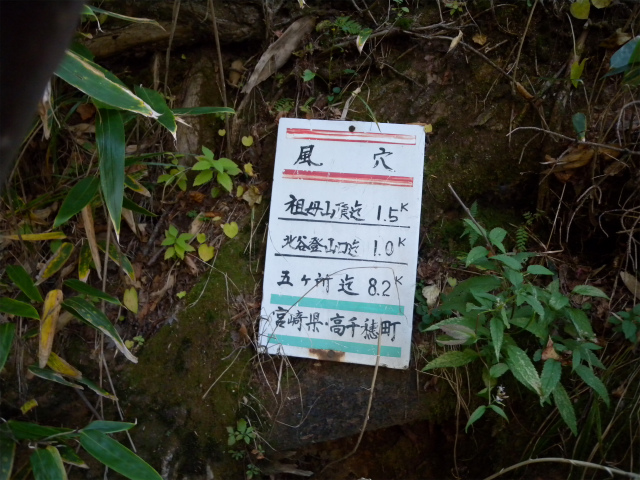 風穴
祖母山頂迄 1.5K
北谷登山口迄 1.0K
五ヶ所迄 8.2K
宮崎県・高千穂町